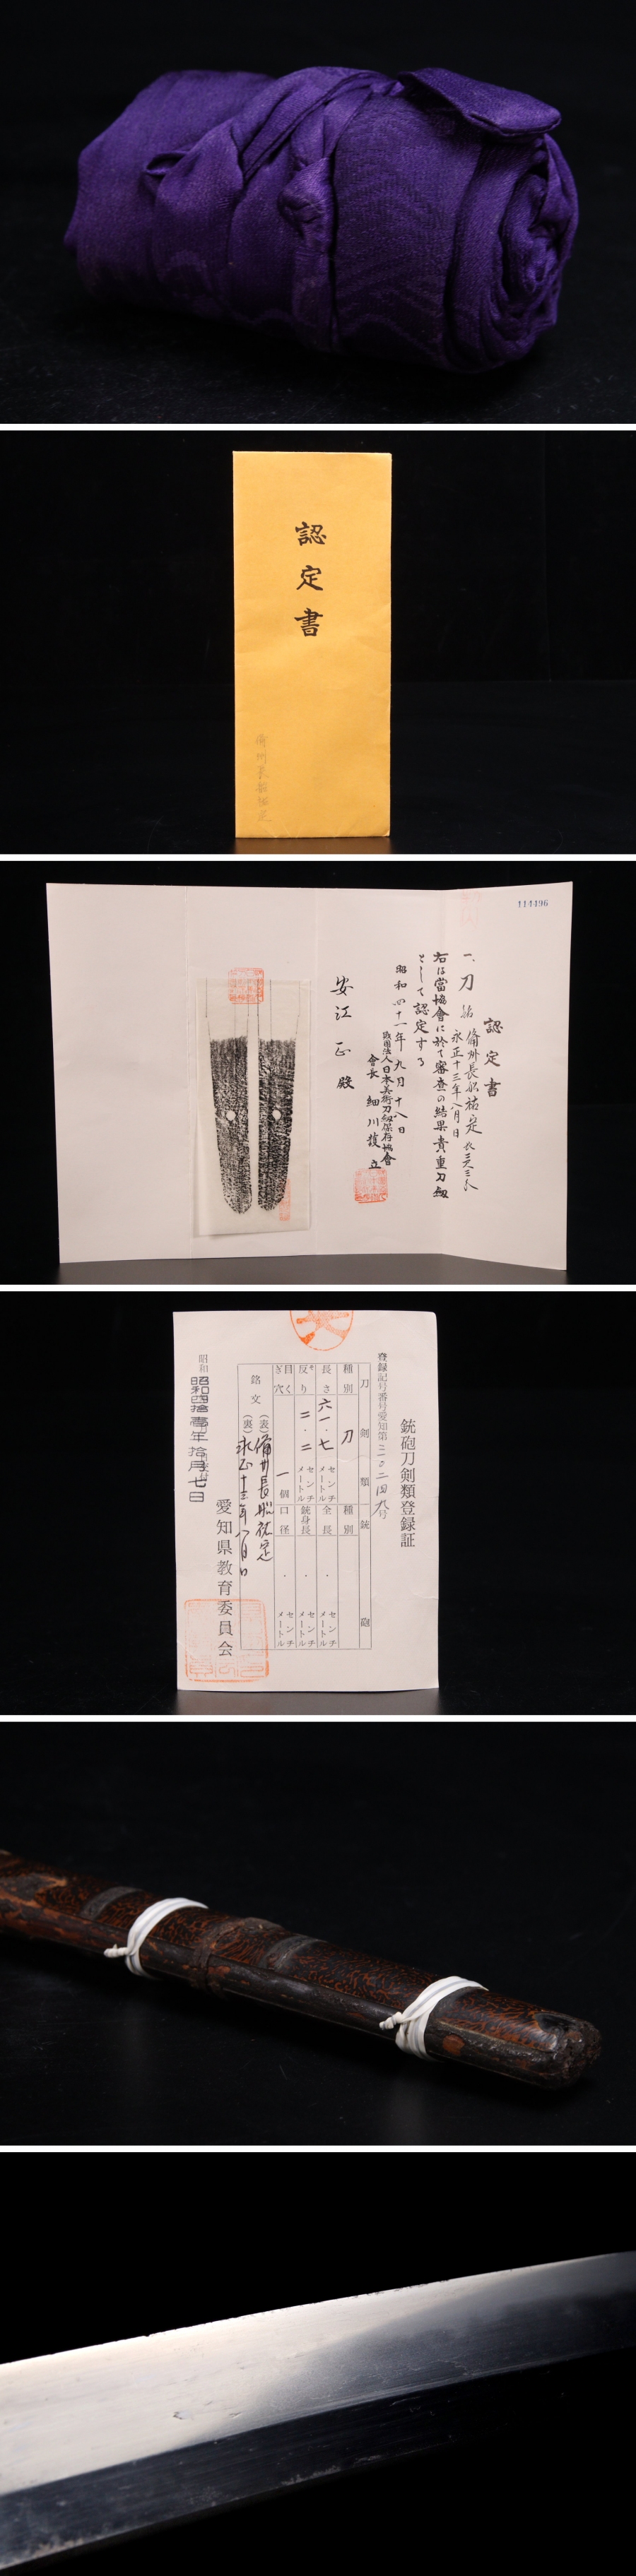 認定書
備州長船祐定
114496
認定書
一、刀 銘 備州長船祐定
永正十三年八月日
右は當協會に於て審査の結果貴重刀剣
として認定する
昭和四十一年九月十八日
財団法人日本美術刀剣保存協會
會長 細川護立
安江正殿
銃砲刀剣類登録証
登録記号番号愛知第三〇二四九号
刀剣類 銃砲
種別 刀 種別
長さ 六一・七 センチメートル 全長 ・ センチメートル
反り 二・二 センチメートル 銃身長 ・ センチメートル
目くぎ穴 一個 口径 ・ センチメートル
銘文 (表)備州長船祐定
(裏)永正十三年八月日
昭和
昭和四拾壹年拾月七日
愛知県教育委員会